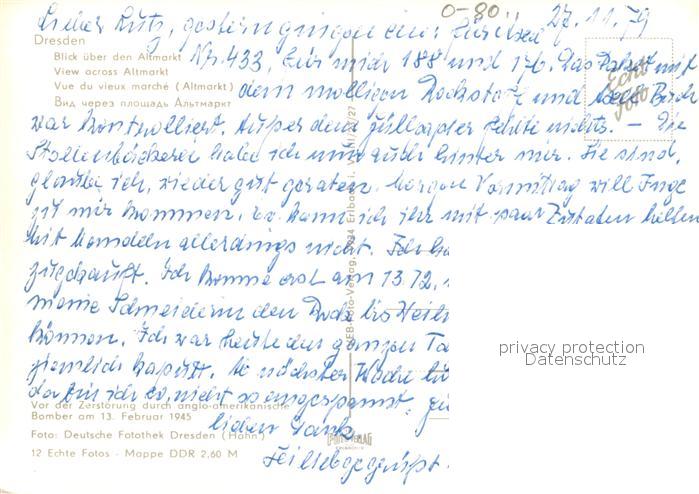 Lieber Lutz, gestern gingen eine für Used 27.11.79
O-80..
Dresden
Blick über den Altmarkt
View across Altmarkt
Vue du vieux marché (Altmarkt)
Вид через площадь Альтмаркт
Nr. 433, für mich 188 und 176. Das Paket mit
dem molligen Rockstoff und Buch
Echt Foto
war kontrolliert. Außer dem fehlte nichts. – Die
Stollenbäckerei habe ich nun auch hinter mir. Sie sind,
glaube ich, wieder gut geraten. Morgen Vormittag will Inge
zu mir kommen, da kann ich ihr mit paar Zutaten helfen
Mit Mandeln allerdings nicht. Ich
zugekauft. Ich komme erst am 13.12.
meine Schneiderin den Rock bis
können. Ich war heute den ganzen
ziemlich kaputt. Ab nächster Woche
da bin ich so nicht so eingespannt.
lieben Dank
VEB Foto-Verlag, 9934 Erlbach i. V.
Vor der Zerstörung durch anglo-amerikanische
Bomber am 13. Februar 1945
Foto: Deutsche Fotothek Dresden (Hahn)
12 Echte Fotos - Mappe DDR 2,60 M
privacy protection
Datenschutz